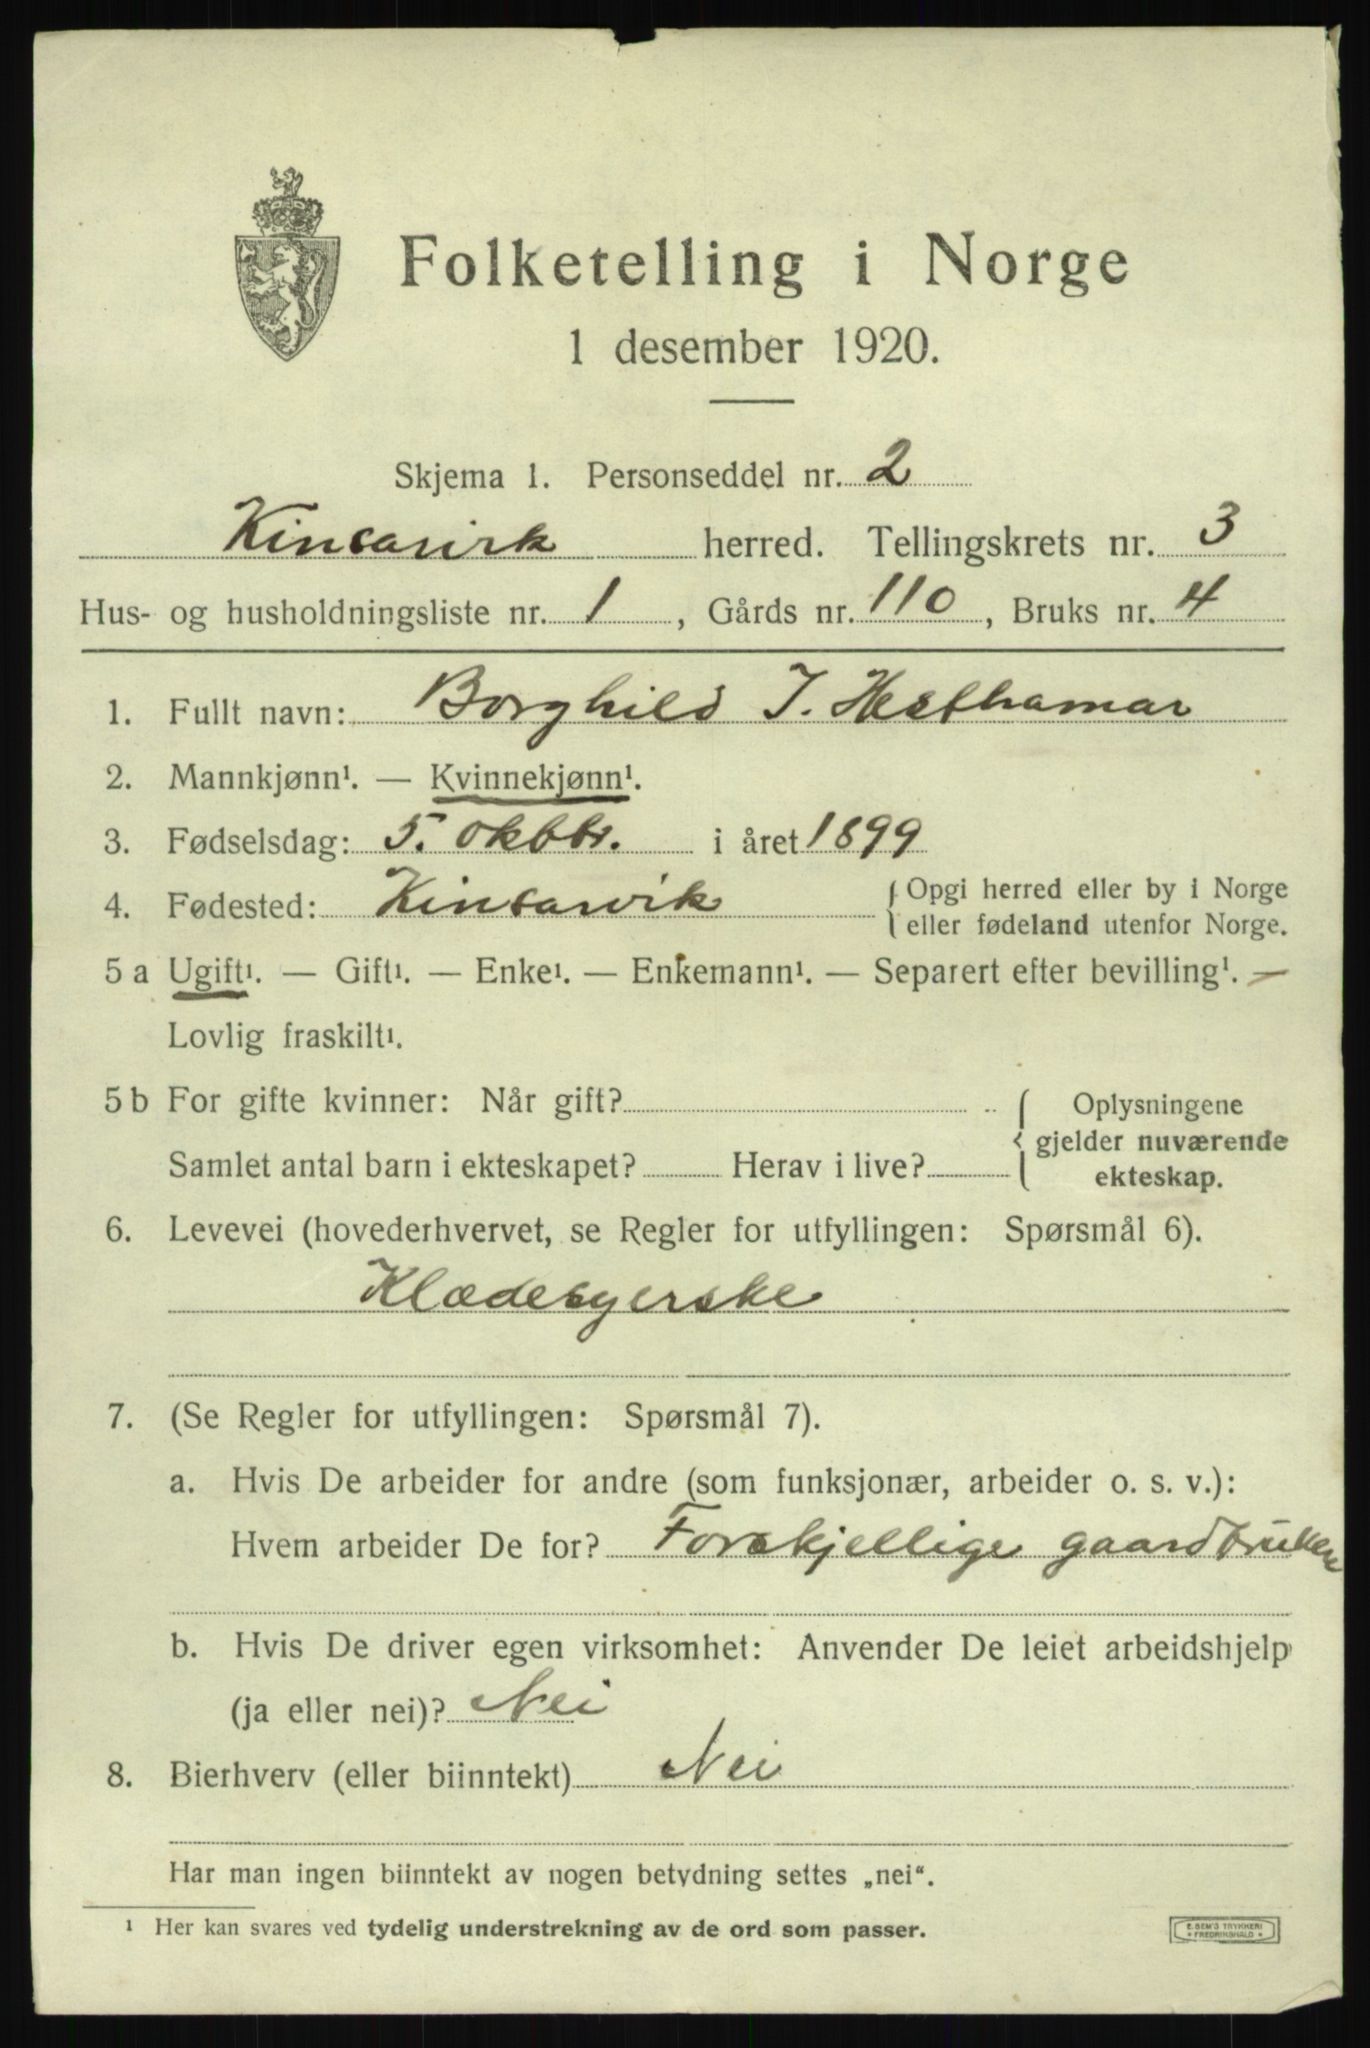 Folketelling i Norge
1 desember 1920.
Skjema 1. Personseddel nr. 2
Kinsarvik herred. Tellingskrets nr. 3
Hus- og husholdningsliste nr. 1, Gårds nr. 110, Bruks nr. 4
1. Fullt navn: Borghild J. Hesthamar
2. Mannkjønn¹. — Kvinnekjønn¹.
3. Fødselsdag: 5. oktbr. i året 1899
4. Fødested: Kinsarvik { Opgi herred eller by i Norge
eller fødeland utenfor Norge.
5 a Ugift¹. — Gift¹. — Enke¹. — Enkemann¹. — Separert efter bevilling¹. —
Lovlig fraskilt¹.
5 b For gifte kvinner: Når gift? { Oplysningene
gjelder nuværende
Samlet antal barn i ekteskapet? Herav i live? ekteskap.
6. Levevei (hovederhvervet, se Regler for utfyllingen: Spørsmål 6).
Klædesyerske
7. (Se Regler for utfyllingen: Spørsmål 7).
a. Hvis De arbeider for andre (som funksjonær, arbeider o. s. v.):
Hvem arbeider De for? Forskjellige gaardbruken
b. Hvis De driver egen virksomhet: Anvender De leiet arbeidshjelp
(ja eller nei)? Nei
8. Bierhverv (eller biinntekt) Nei
Har man ingen biinntekt av nogen betydning settes „nei“.
¹ Her kan svares ved tydelig understrekning av de ord som passer.
E. SEM'S TRYKKERI
FREDRIKSHALD